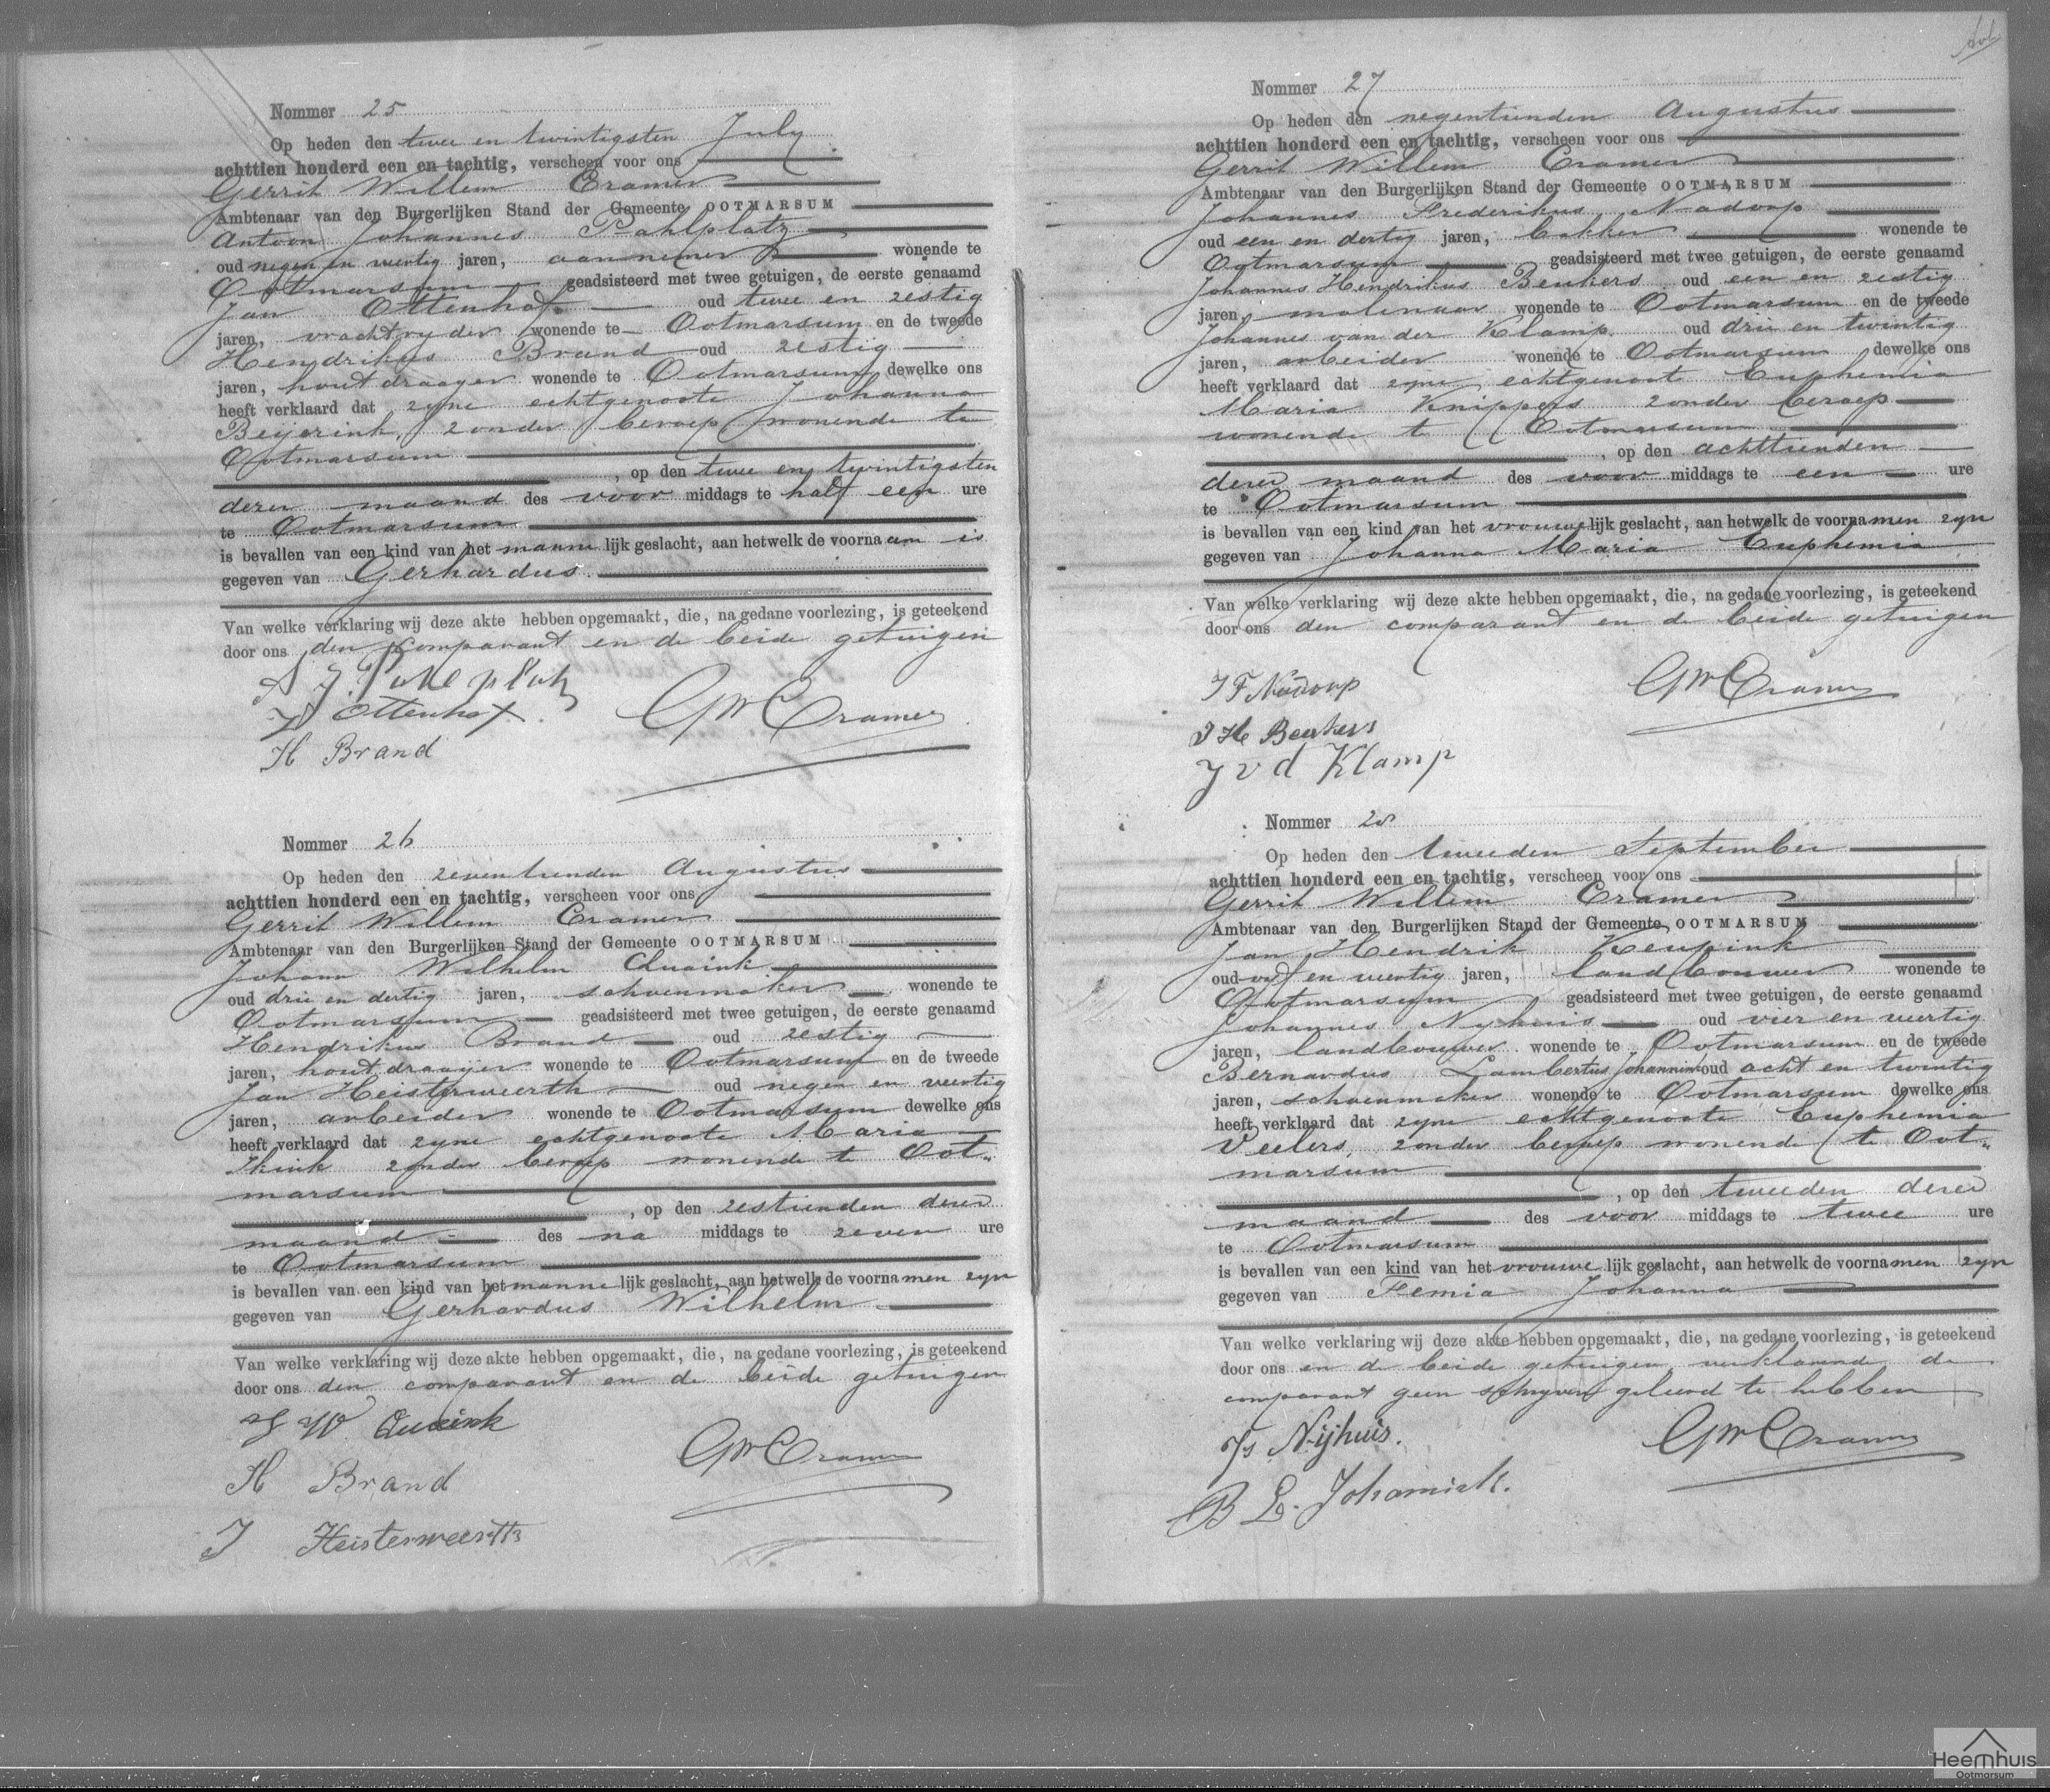 Nommer 25
Op heden den twee en twintigsten July
achttien honderd een en tachtig, verscheen voor ons
Gerrit Willem Cramer
Ambtenaar van den Burgerlijken Stand der Gemeente OOTMARSUM
Antoon Johannes Pahlplatz
oud negen en veertig jaren, aannemer wonende te
Ootmarsum geadsisteerd met twee getuigen, de eerste genaamd
Jan Ottenhof oud twee en zestig
jaren, vrachtryder wonende te Ootmarsum en de tweede
Hendrikus Brand oud zestig
jaren, houtdraayer wonende te Ootmarsum dewelke ons
heeft verklaard dat zyne echtgenoote Johanna
Beijerink, zonder beroep wonende te
Ootmarsum
, op den twee en twintigsten
dezer maand des voor middags te half een ure
te Ootmarsum
is bevallen van een kind van het manne lijk geslacht, aan hetwelk de voornaam is
gegeven van Gerhardus
Van welke verklaring wij deze akte hebben opgemaakt, die, na gedane voorlezing, is geteekend
door ons den comparant en de beide getuigen
A J. Pahlplatz
J Ottenhof
GWCramer
H Brand
Nommer 26
Op heden den zeventienden Augustus
achttien honderd een en tachtig, verscheen voor ons
Gerrit Willem Cramer
Ambtenaar van den Burgerlijken Stand der Gemeente OOTMARSUM
Johann Wilhelm Quaink
oud drie en dertig jaren, schoenmaker wonende te
Ootmarsum geadsisteerd met twee getuigen, de eerste genaamd
Hendrikus Brand oud zestig
jaren, houtdraaijer wonende te Ootmarsum en de tweede
Jan Heisterweerth oud negen en veertig
jaren, arbeider wonende te Ootmarsum dewelke ons
heeft verklaard dat zyne echtgenoote Maria
Ikink zonder beroep wonende te Oot„
marsum
, op den zestienden dezer
maand des na middags te zeven ure
te Ootmarsum
is bevallen van een kind van het manne lijk geslacht, aan hetwelk de voornamen zyn
gegeven van Gerhardus Wilhelm
Van welke verklaring wij deze akte hebben opgemaakt, die, na gedane voorlezing, is geteekend
door ons den comparant en de beide getuigen
J W Quaink
GWCramer
H Brand
J Heisterweerth
Nommer 27
Op heden den negentienden Augustus
achttien honderd een en tachtig, verscheen voor ons
Gerrit Willem Cramer
Ambtenaar van den Burgerlijken Stand der Gemeente OOTMARSUM
Johannes Frederikus Nadorp
oud een en dertig jaren, bakker wonende te
Ootmarsum geadsisteerd met twee getuigen, de eerste genaamd
Johannes Hendrikus Beukers oud een en zestig
jaren, molenaar wonende te Ootmarsum en de tweede
Johannes van der Klamp oud drie en twintig
jaren, arbeider wonende te Ootmarsum dewelke ons
heeft verklaard dat zyne echtgenoote Euphemia
Maria Knippers zonder beroep
wonende te Ootmarsum
, op den achttienden
dezer maand des voor middags te een ure
te Ootmarsum
is bevallen van een kind van het vrouwelijk geslacht, aan hetwelk de voornamen zyn
gegeven van Johanna Maria Euphemia
Van welke verklaring wij deze akte hebben opgemaakt, die, na gedane voorlezing, is geteekend
door ons den comparant en de beide getuigen
J F Nadorp
GWCramer
J H Beukers
J v d Klamp
Nommer 28
Op heden den tweeden September
achttien honderd een en tachtig, verscheen voor ons
Gerrit Willem Cramer
Ambtenaar van den Burgerlijken Stand der Gemeente OOTMARSUM
Jan Hendrik Keupink
oud vyf en veertig jaren, landbouwer wonende te
Ootmarsum geadsisteerd met twee getuigen, de eerste genaamd
Johannes Nyhuis oud vier en veertig
jaren, landbouwer wonende te Ootmarsum en de tweede
Bernardus Lambertus Johannink oud acht en twintig
jaren, schoenmaker wonende te Ootmarsum dewelke ons
heeft verklaard dat zyne echtgenoote Euphemia
Veelers, zonder beroep wonende te Oot„
marsum
, op den tweeden dezer
maand des voor middags te twee ure
te Ootmarsum
is bevallen van een kind van het vrouwe lijk geslacht, aan hetwelk de voornamen zyn
gegeven van Femia Johanna
Van welke verklaring wij deze akte hebben opgemaakt, die, na gedane voorlezing, is geteekend
door ons en de beide getuigen verklarende de
comparant geen schryven geleerd te hebben
Js Nijhuis.
GWCramer
B L. Johannink.
Heemhuis
Ootmarsum